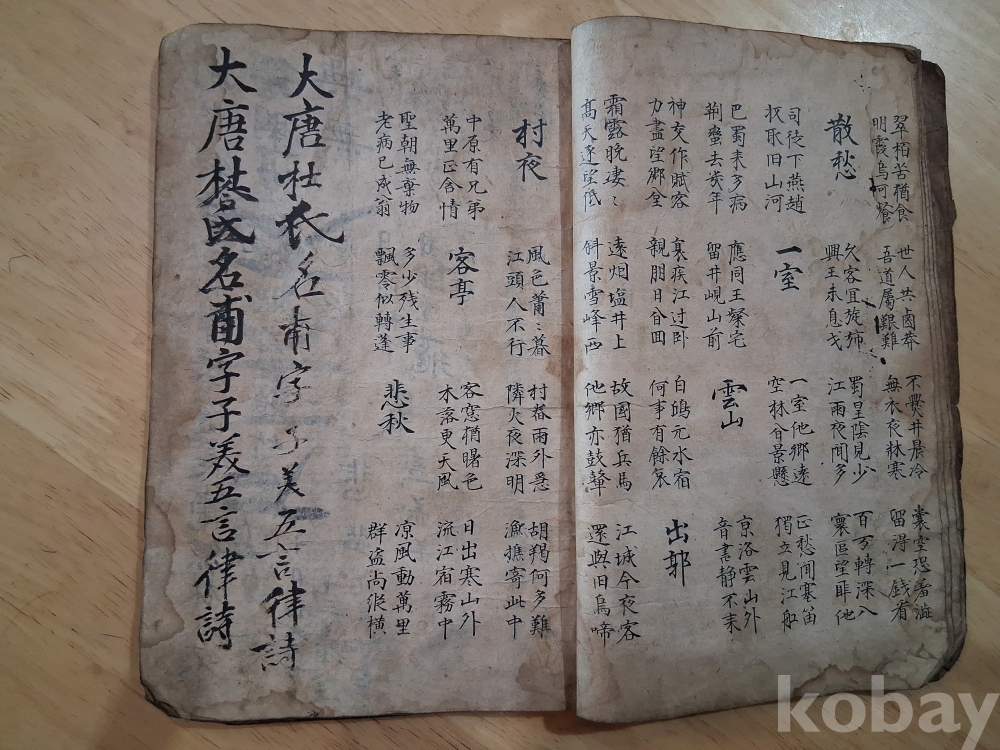 翠栢苦猶食
明霞烏可飡
世人共鹵莽
吾道屬艱難
不爨井晨冷
無衣夜牀寒
囊空恐羞澁
留得一錢看
散愁
久客宜旋斾
興王未息戈
蜀星陰見少
江雨夜聞多
百万轉深入
寰區望匪他
司徒下燕趙
収取旧山河
一室
一室他鄉遠
空林景懸
正愁聞塞笛
獨立見江船
巴蜀来多病
荆蠻去幾年
應同王粲宅
留井峴山前
雲山
京洛雲山外
音書静不来
神交作賦客
力盡望鄉
衰疾江过卧
親朋日回
白鴎元水宿
何事有餘哀
出郭
霜露晩凄〻
高天逐望低
遠烟塩井上
斜景雪峰西
故國猶兵馬
他鄉亦鼓鼙
江城今夜客
還與旧烏啼
村夜
風色蕭〻暮
江頭人不行
村舂雨外急
隣火夜深明
胡羯何多難
漁樵寄此中
中原有兄弟
萬里正含情
客亭
客窓猶曙色
木落更天風
日出寒山外
流江宿霧中
聖朝無棄物
老病已成翁
多少残生事
飄零似轉蓬
悲秋
凉風動萬里
群盗尚縱横
大唐杜氏名甫字子美五言律詩
大唐氏名甫字子美五言律詩
kobay